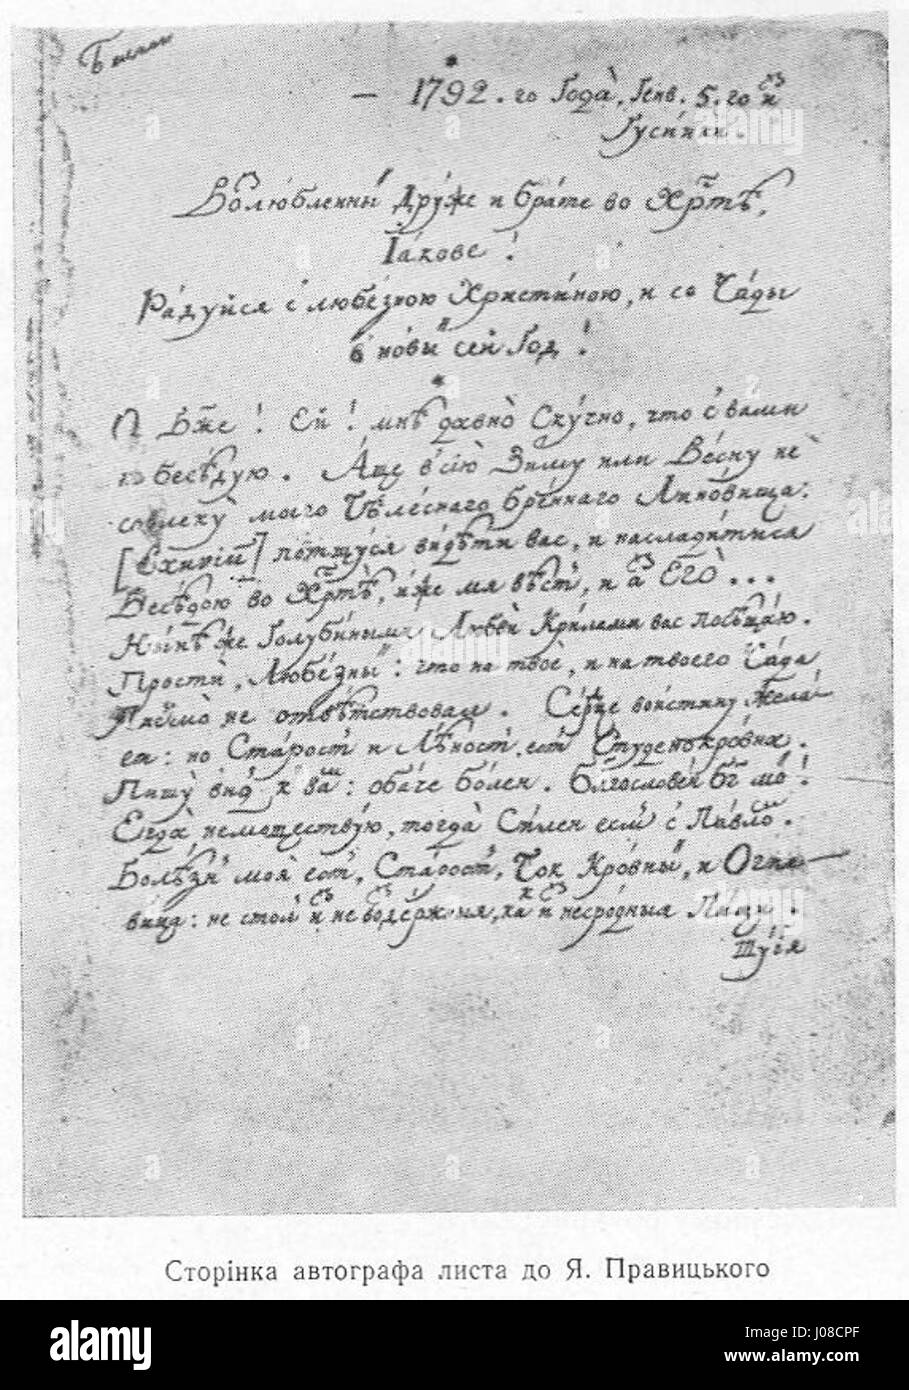 — 1792. го Года̀, Генв. 5. го из
Гусинки.
Возлюбленный Друже и брате во Хрте,
Іа́кове!
Ра́дуйся с любе́зною Христи́ною, и со Ча́ды
в но́вый сей Год!
О Бж҃е! Ей! мнѣ давно̀ Ску́чно, что с ва́ми
не бесѣ́дую. А́ще в сію̀ Зи́му или Ве́сну не
совлеку̀ моего Тѣле́снаго бре́ннаго Лино́вища:
потщу́ся ви́дѣти вас, и наслади́тися
Бесѣ́дою во Хртѣ̀, и́же мя вѣ́сть, и аз Его̀ ...
Ны́нѣ же Голуби́ными Любви̇ Кри́лами вас посѣща́ю.
Прости̇, Любе́зный: что на твоѐ, и на твоего Ча́да
Письмо̀ не отвѣ́тствовал. Се́рце вои́стину Жела́-
ет: но Ста́рость и Лѣ́ность есть Студенокро́вна.
Пишу̀ к вам: оба́че бо́лен. Благослове́н Бг҃ мо́й!
Егда̀ немоществу́ю, тогда̀ Си́лен есмь с Па́влом.
Болѣ́знь моя̀ есть, Ста́рость, Ток Кро́вный, и Огне-
ви́ца: не столь из невоздержа́ния, как из несро́дныя Пищи.
alamy
Сторінка автографа листа до Я. Правицького
alamy
Image ID: J08CPF
www.alamy.com